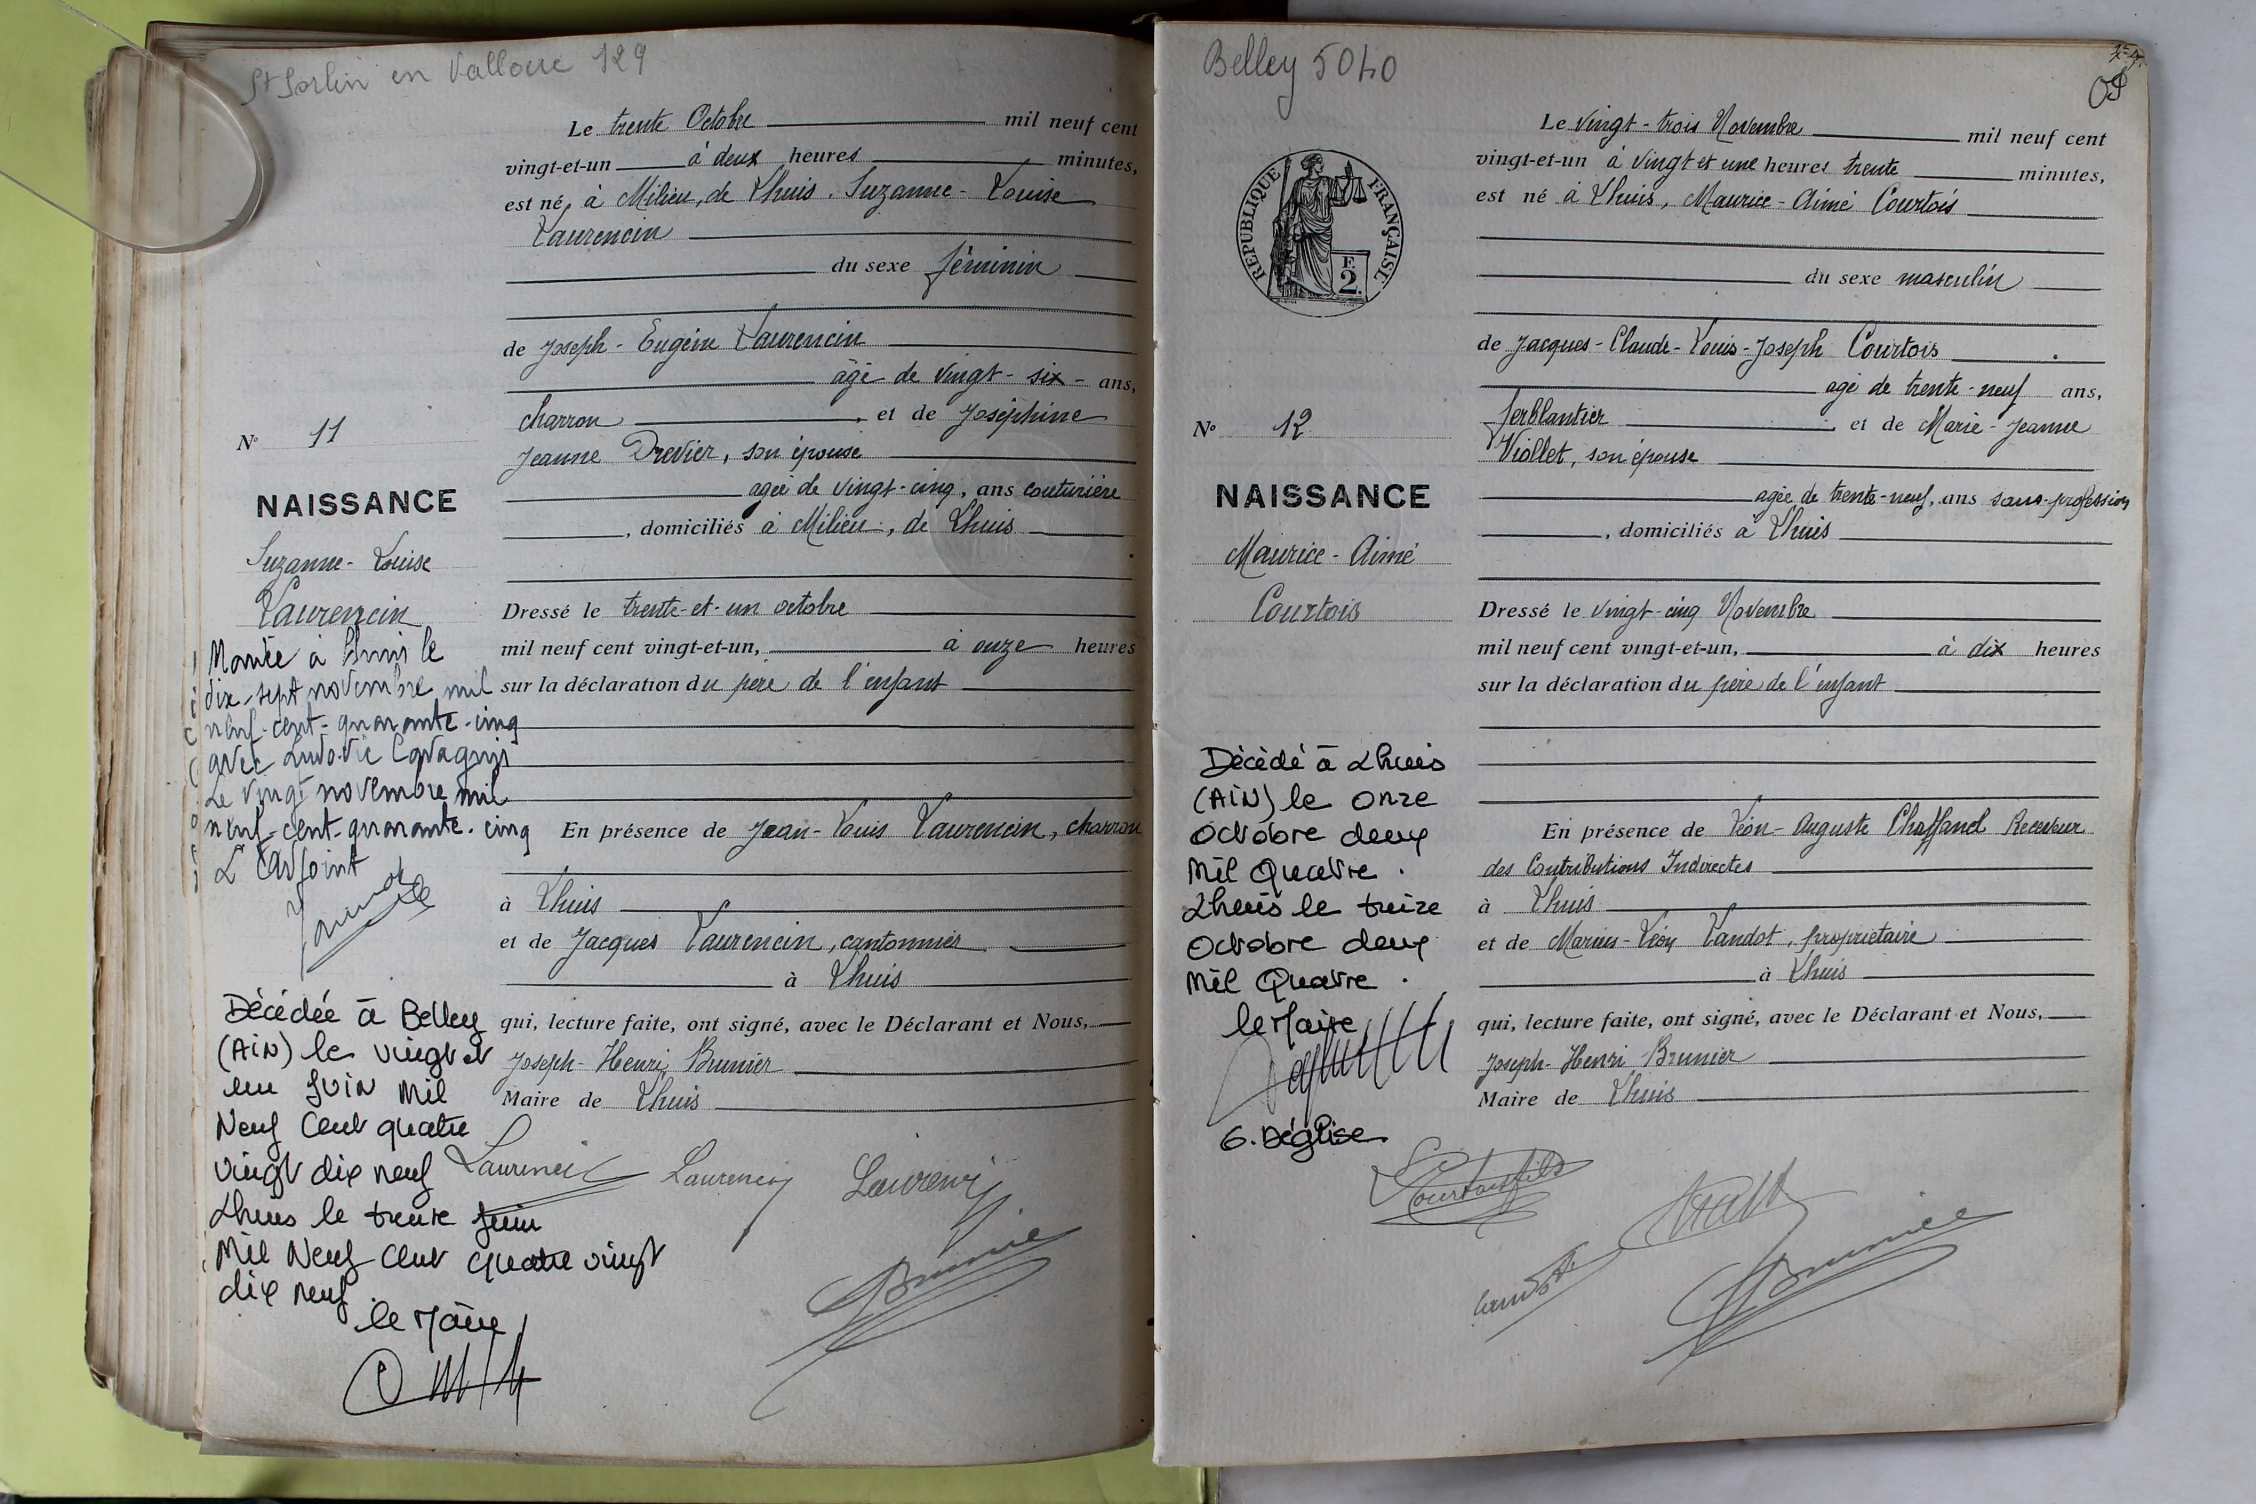 St Sorlin en Valloire 129
Le trente Octobre mil neuf cent
vingt-et-un à deux heures minutes,
est né, à Milieu, de Lhuis, Suzanne-Louise
Laurencin
du sexe féminin
de Joseph-Eugène Laurencin
âgé de vingt-six- ans,
charron, et de Joséphine
Jeanne Drevier, son épouse
agée de vingt-cinq, ans couturière
, domiciliés à Milieu, de Lhuis
Dressé le trente-et-un octobre
mil neuf cent vingt-et-un, à onze heures
sur la déclaration du père de l'enfant
En présence de Jean-Louis Laurencin, charron
à Lhuis
et de Jacques Laurencin, cantonnier
à Lhuis
qui, lecture faite, ont signé, avec le Déclarant et Nous,
Joseph-Henri Brunier
Maire de Lhuis
Laurencin Laurencin Laurencin
Brunier
No 11
NAISSANCE
Suzanne-Louise
Laurencin
Mariée à Lhuis le
dix-sept novembre mil
neuf-cent-quarante-cinq
avec Ludovic
Le vingt novembre mil
neuf-cent-quarante-cinq
L'adjoint
Décédée à Belley
(AIN) le vingt et
un JUIN Mil
Neuf Cent quatre
vingt dix neuf
Lhuis le trente Juin
Mil Neuf Cent quatre vingt
dix neuf
le Maire
Belley 5040
Le vingt-trois Novembre mil neuf cent
vingt-et-un à vingt et une heures trente minutes,
est né à Lhuis, Maurice-Aimé Courtois
du sexe masculin
de Jacques-Claude-Louis-Joseph Courtois
agé de trente-neuf ans,
ferblantier et de Marie-Jeanne
Viollet, son épouse
agée de trente-neuf, ans sans-profession
, domiciliés à Lhuis
Dressé le vingt-cinq Novembre
mil neuf cent vingt-et-un, à dix heures
sur la déclaration du père de l'enfant
En présence de Léon-Auguste Chaffanel Receveur
des Contributions Indirectes
à Lhuis
et de Marius-Léon Landot, propriétaire
à Lhuis
qui, lecture faite, ont signé, avec le Déclarant et Nous,
Joseph-Henri Brunier
Maire de Lhuis
Courtois fils
Landot
Brunier
RÉPUBLIQUE FRANÇAISE
F.
2.
No 12
NAISSANCE
Maurice-Aimé
Courtois
Décédé à Lhuis
(AIN) le onze
Octobre deux
Mil Quatre.
Lhuis le treize
Octobre deux
Mil Quatre.
le Maire
G. Déglise